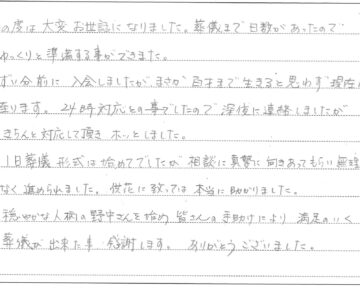 の度は大変お世話になりました。葬儀まで日数があったので
ゆっくりと準備する事ができました。
ずい分前に入会しましたが、まさか まで生きると思わず
ります。24時対応との事でしたので深夜に連絡しましたが
きちんと対応して頂きホッとしました。
1日葬儀形式は始めてでしたが相談に真摯に向きあってもらい無理
なく進められました。供花に致っては本当に助かりました。
穏やかな人柄の野中さんを始め皆さんの手助けにより満足のいく
葬儀が出来た事感謝します。ありがとうございました。